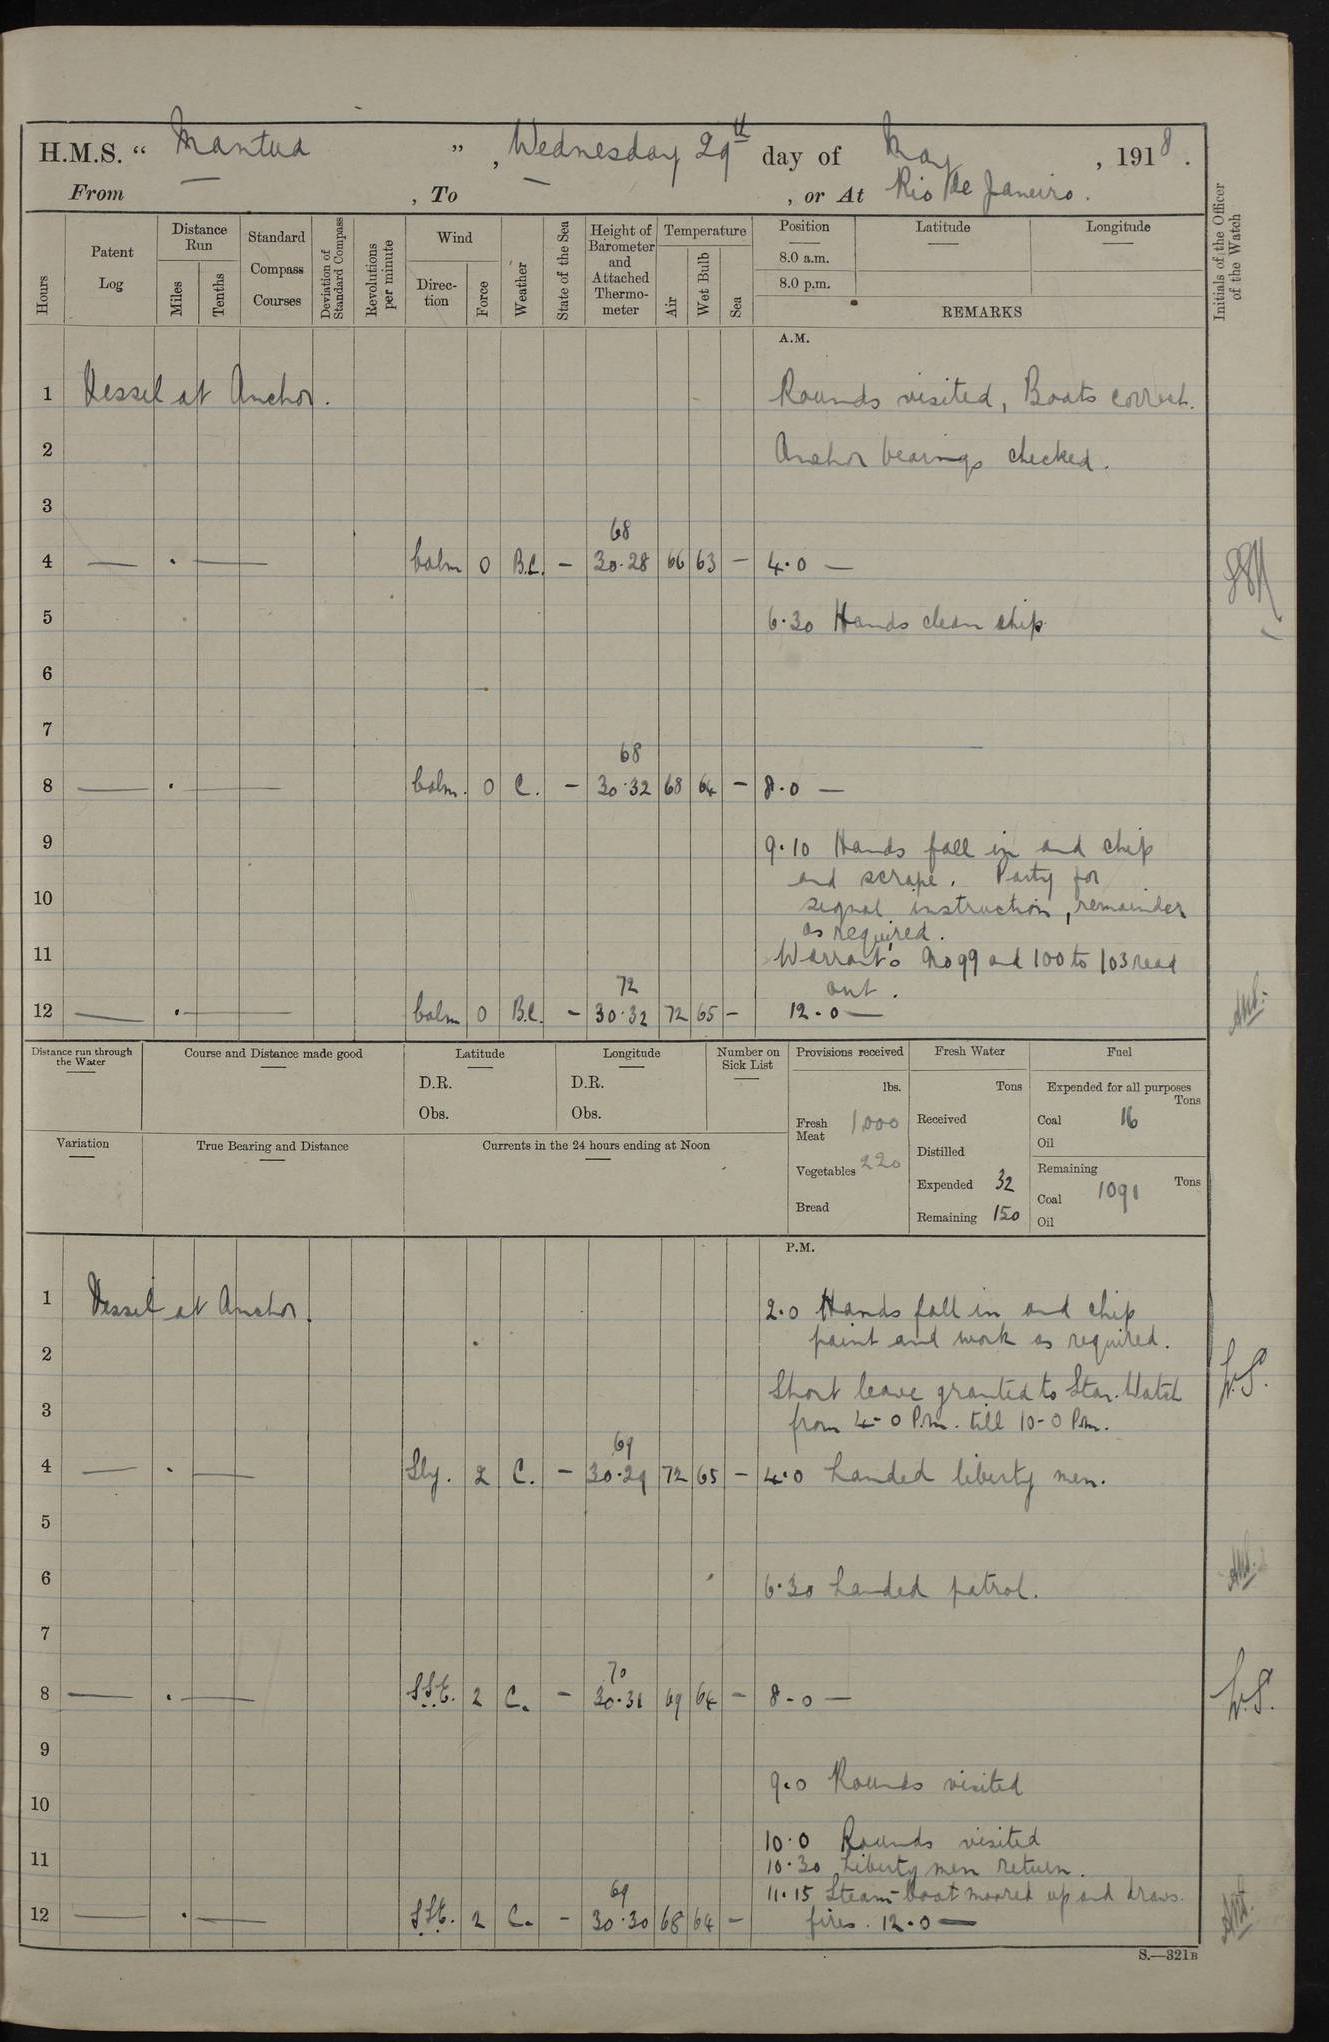 H.M.S. “ Mantua ” , Wednesday 29th day of May , 1918 .
From — , To — , or At Rio De Janeiro .
Hours
Patent Log
Distance Run
Miles
Tenths
Standard Compass Courses
Deviation of Standard Compass
Revolutions per minute
Wind
Direction
Force
Weather
State of the Sea
Height of Barometer and Attached Thermometer
Temperature
Air
Wet Bulb
Sea
Position
8.0 a.m.
8.0 p.m.
Latitude
Longitude
REMARKS
Initials of the Officer of the Watch
A.M.
1 Vessel at Anchor. Rounds visited, Boats correct.
2 Anchor bearings checked.
3
68
4 — . — Calm 0 B.C. — 30.28 66 63 — 4.0 —
5 6.30 Hands clean ship
6
7
68
8 — . — Calm. 0 C. — 30.32 68 64 — 8.0 —
9 9.10 Hands fall in and chip
and scrape. Party for
10 signal instruction, remainder
as required.
11 Warrants No 99 and 100 to 103 read
72 out.
12 — . — Calm 0 B.C. — 30.32 72 65 — 12.0 —
Distance run through the Water
Course and Distance made good
Latitude
D.R.
Obs.
Longitude
D.R.
Obs.
Number on Sick List
Variation
True Bearing and Distance
Currents in the 24 hours ending at Noon
Provisions received
lbs.
Fresh Meat 1,000
Vegetables 220
Bread
Fresh Water
Tons
Received
Distilled
Expended 32
Remaining 150
Fuel
Expended for all purposes
Tons
Coal 16
Oil
Remaining
Tons
Coal 1091
Oil
P.M.
1 Vessel at Anchor. 2.0 Hands fall in and chip
paint and work as required.
2 W.S.
Short leave granted to Star. Watch
3 from 4-0 P.m. till 10-0 P.m.
69
4 — . — Sly. 2 C. — 30.29 72 65 — 4.0 Landed liberty men.
5
6 6.30 Landed patrol.
7
70
8 — . — SSE. 2 C. — 30.31 69 64 — 8-0 — W.S.
9
9.0 Rounds visited
10
10.0 Rounds visited
11 10.30 Liberty men return.
69 11.15 Steam-boat moored up and draws
12 — . — SSE. 2 C. — 30.30 68 64 — fires. 12.0 —
S.—321B